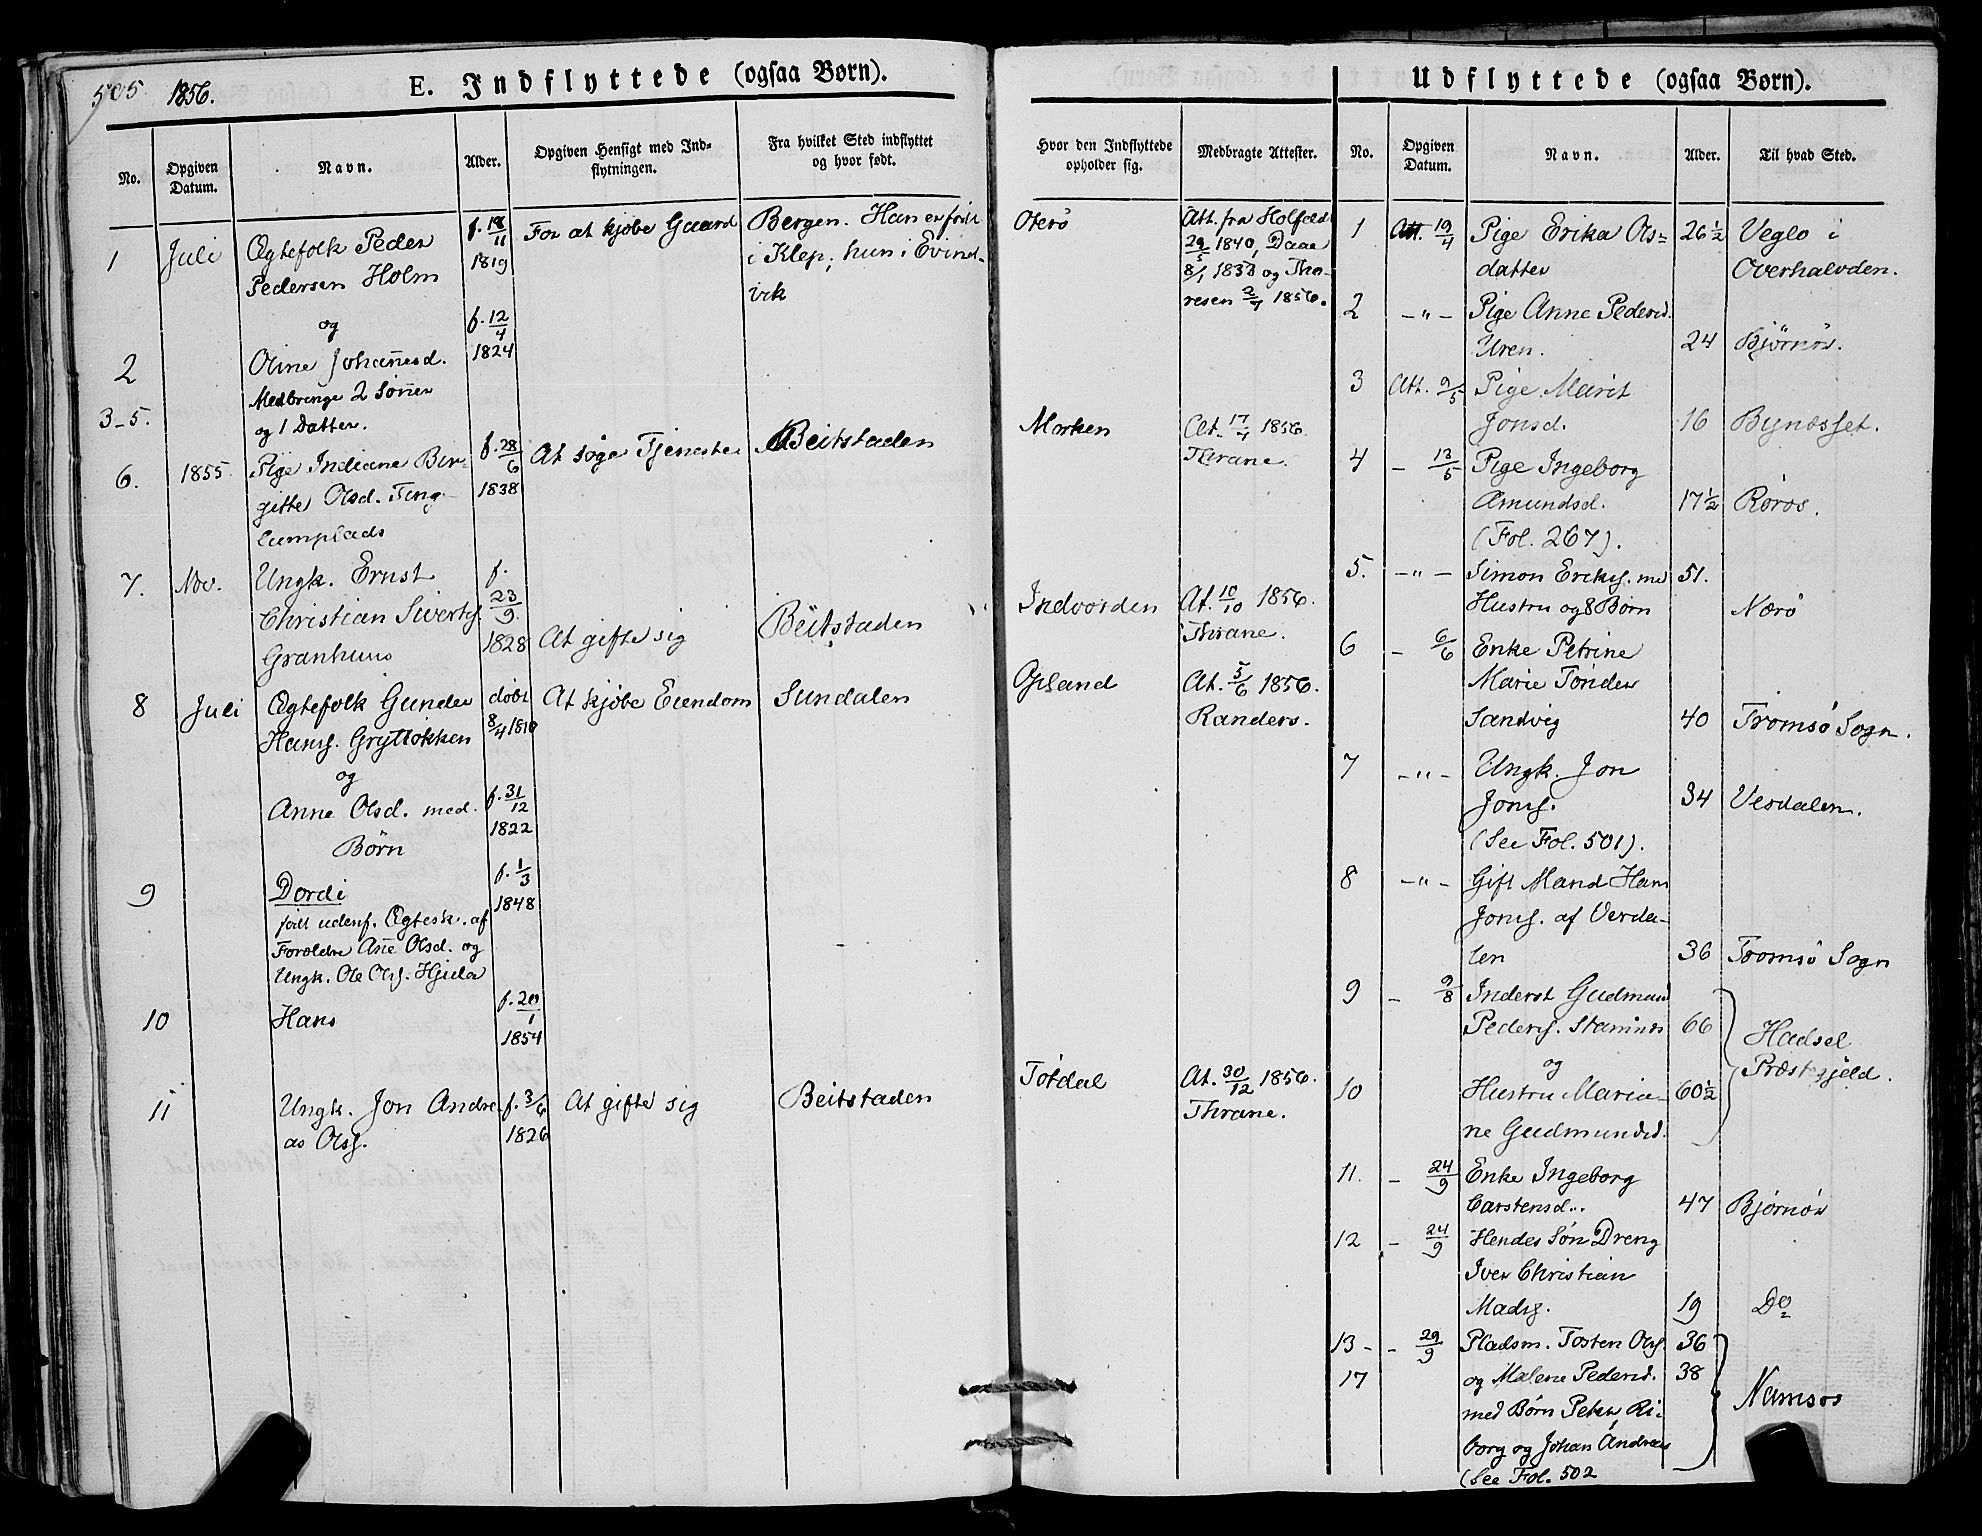 505 1856. E. Indflyttede (ogsaa Børn).
No. Opgiven Datum. Navn. Alder. Opgiven Hensigt med Indflytningen. Fra hvilket Sted indflyttet og hvor født.
1 Juli Ægtefolk Peder f. 18/11 For at kjøbe Gaard Bergen. Han er født
Pedersen Holm 1819 i Klep; hun i Evind-
og f. 12/4 vik
2 Oline Johannesd. 1824
Medbringe 2 Sønner
3-5. og 1 Datter.
6. 1855. Pige Indiane Bir- f. 28/6 At søge Tjeneste Beitstaden
gitte Olsd. Ting- 1838
7. Nov. Ungk. Ernst f.
Christian Siverts. 23/9
Granhuus 1828 At gifte sig Beitstaden
8 Juli Ægtefolk Gunder døbt At kjøbe Eiendom Sundalen
Hans. 8/4 1810
og
Anne Olsd. med f. 31/12
Børn 1822
9 Dordi f. 1/3
født udenf. Ægtesk. af 1848
Forældre Anne Olsd. og
Ungk. Ole Ols.
10 Hans f. 20/1
1854
11 Ungk. Jon Andre- f. 3/6 At gifte sig Beitstaden
as Ols. 1826
Udflyttede (ogsaa Børn).
Hvor den Indflyttede opholder sig. Medbragte Attester. No. Opgiven Datum. Navn. Alder. Til hvad Sted.
Oterø Att. fra
29/5 1840, Daae
8/1 1838 og Tho-
resen 2/7 1856.
Morken At. 17/4 1856.
Thrane.
Indvorden At. 10/10 1856.
Thrane.
Opland At. 5/6 1856.
Randers.
Tøtdal At. 30/12 1856.
Thrane.
1 Att. 19/4 Pige Erika Ols- 26½ Veglo i
datter Overhalvden.
2 -"- Pige Anne Pedersd.
Uren. 24 Bjørnør.
3 Att. 9/5 Pige Marit
Jonsd. 16 Bynæsset.
4 - 13/5 Pige Ingeborg
Amundsd. 17½ Røros.
(Fol. 267).
5. -"- Simon Eriks. med 51.
Hustru og 8 Børn Nærø
6 - 6/6 Enke Petrine
Marie Tønder
Sandvig 40 Tromsø Sogn.
7 -"- Ungk. Jon
Jons. 34 Verdalen.
(See Fol. 501).
8 -"- Gift Mand Hans
Jons. af Verda-
len 36 Tromsø Sogn
9 - 9/8 Inderst Gudmund
Peders. Stamnes 66 Hadsel
og Præstegjeld.
10 Hustru Maria- 60½
ne Gudmundsd.
11. - 24/9 Enke Ingeborg
Carstensd. 47 Bjørnør
12 - 24/9 Hendes Søn Dreng
Iver Christian
Mads. 19 Do
13- - 29/9 Pladsm. Tosten Ols. 36
17 og Malene Pedersd. 38
med Børn Peter Ri- Namsos
borg og Johan Andreas
(See Fol. 502